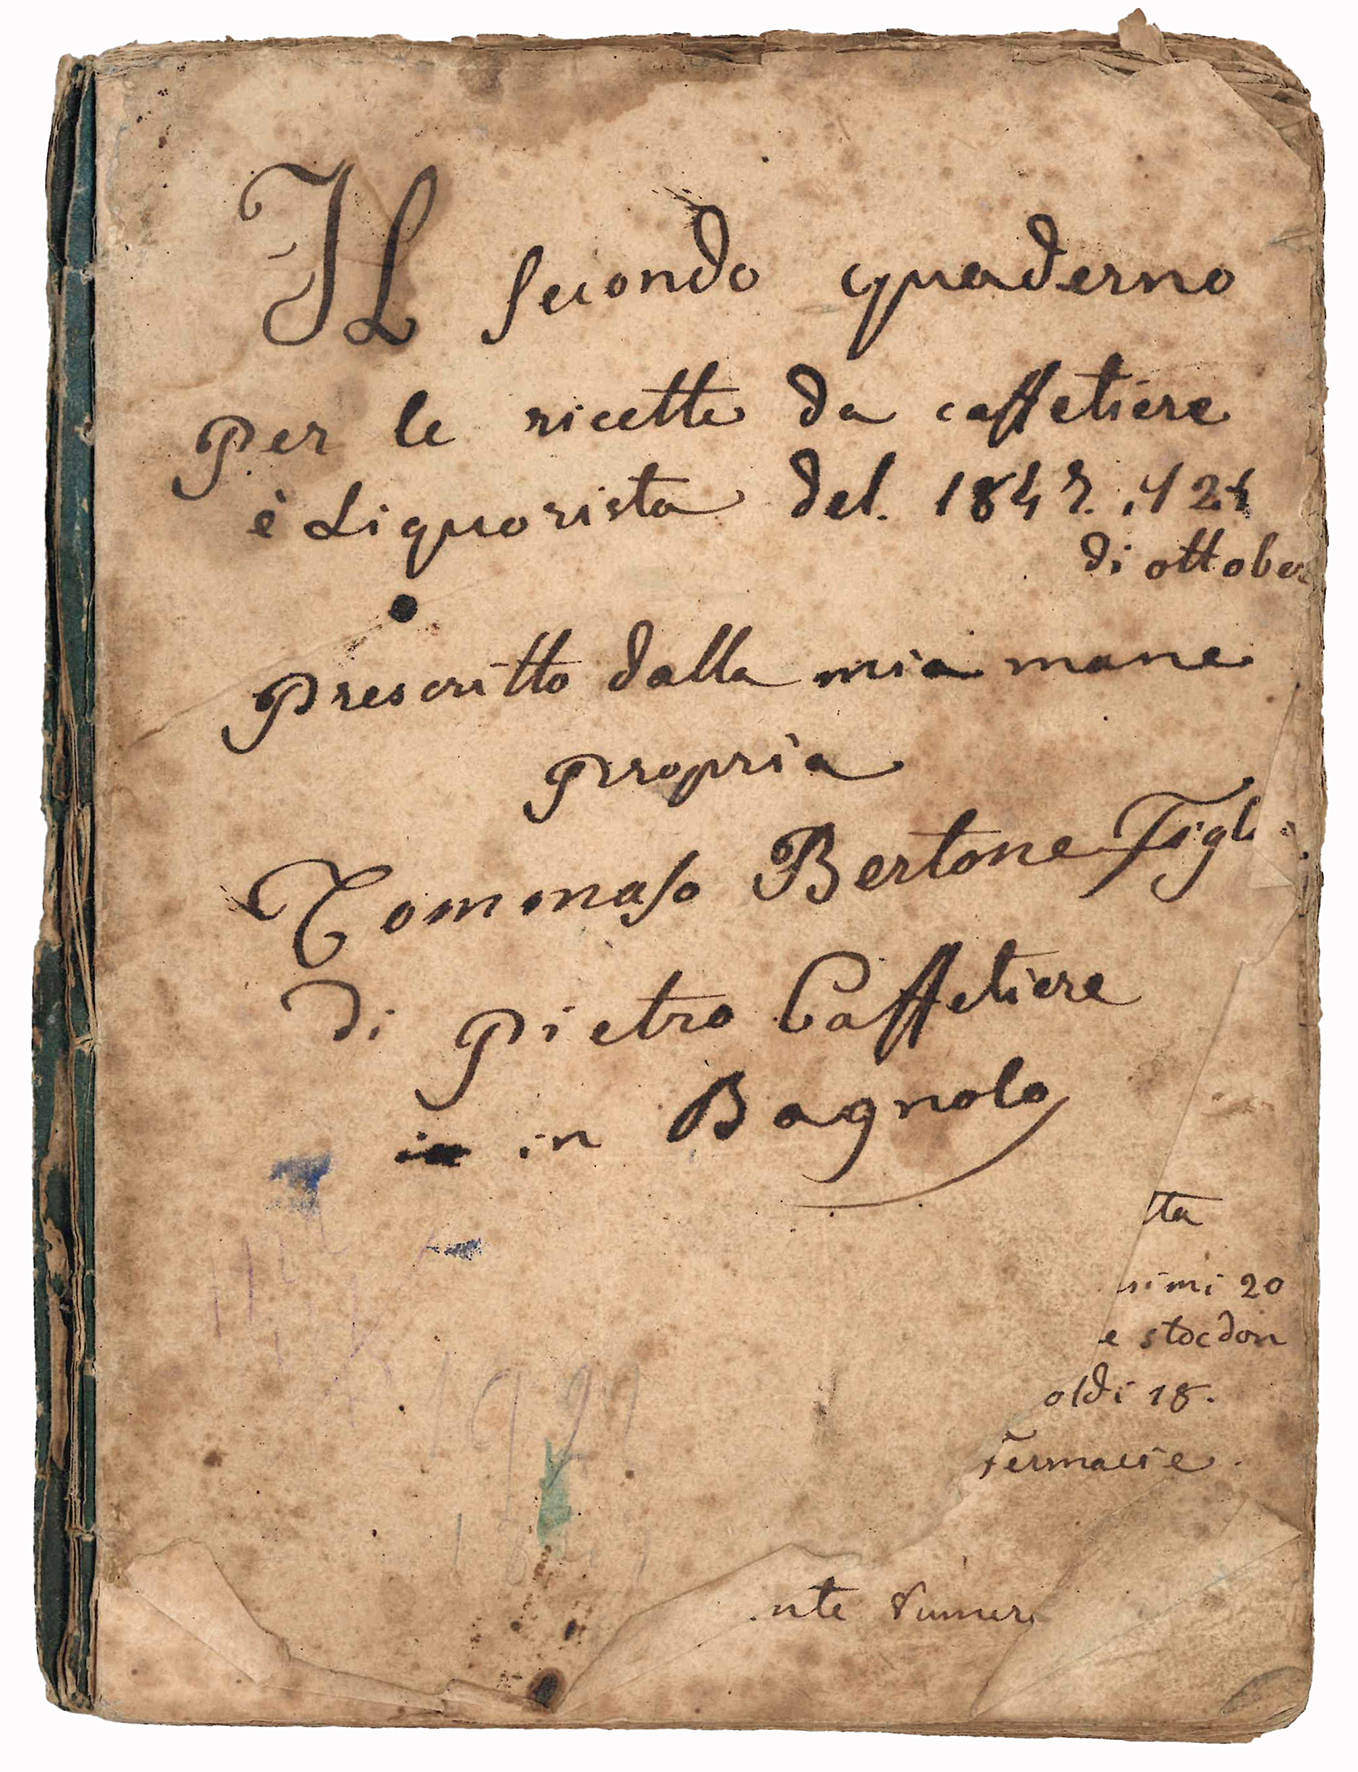 Il secondo quaderno
Per le ricette da caffetiere
è Liquorista del. 184
di ottobre
Prescritto dalla mia mane
propria
Tommaso Bertone Figl
Di Pietro Caffetiere
in in Bagnolo
tta
simi 20
e stocdon
oldi 18.
Fermacie.
nte Numer